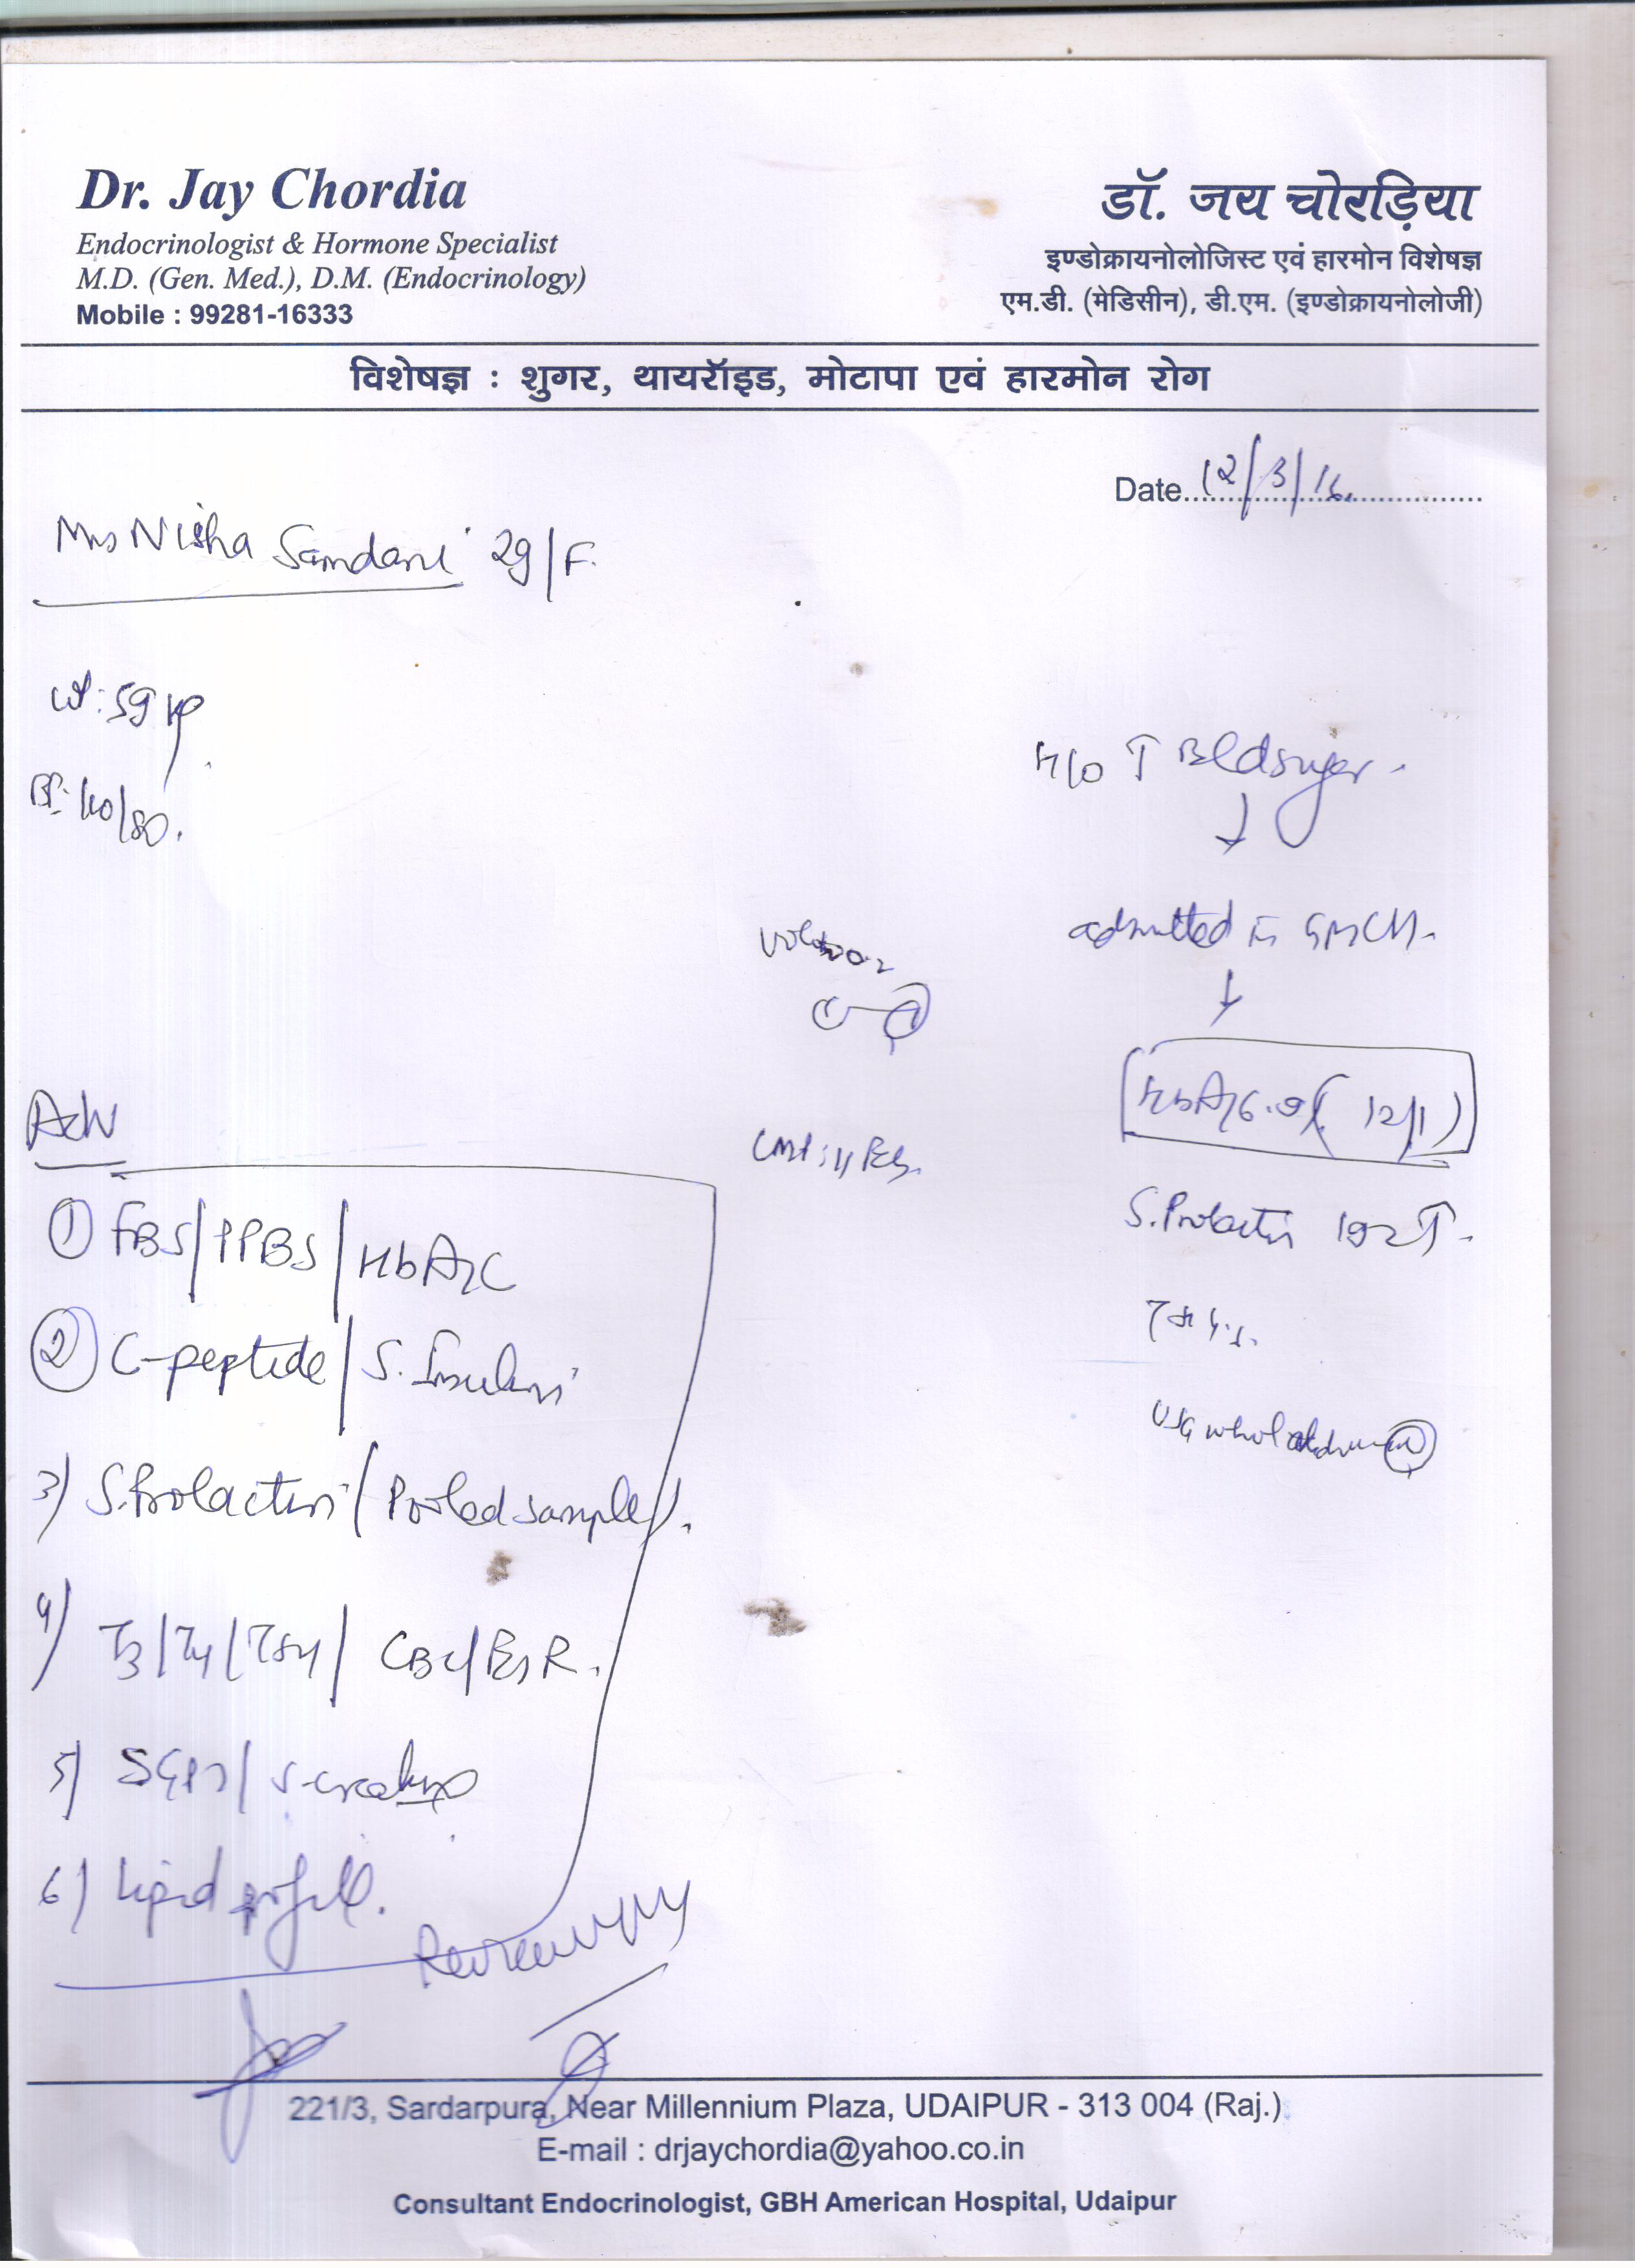 Dr. Jay Chordia
Endocrinologist & Hormone Specialist
M.D. (Gen. Med.), D.M. (Endocrinology)
Mobile : 99281-16333
डॉ. जय चोरड़िया
इण्डोक्रायनोलोजिस्ट एवं हारमोन विशेषज्ञ
एम.डी. (मेडिसीन), डी.एम. (इण्डोक्रायनोलोजी)
विशेषज्ञ : शुगर, थायरॉइड, मोटापा एवं हारमोन रोग
Date 12/3/16
Mrs Nisha 29/F.
wt: 59 kg
BP: /80.
H/o ↑ Bld sugar
↓
admitted in GMCH.
↓
HbA1c (12/1)
S. Prolactin 192 ↑
USG whole abdomen (N)
Adv
① FBS/PPBS/HbA1C
② C-peptide/S. Insulin
3) S. Prolactin (Pooled sample).
4) T3/T4/TSH/ CBC/ESR.
5) SGPT/S. creatinine
6) Lipid profile.
Review
221/3, Sardarpura, Near Millennium Plaza, UDAIPUR - 313 004 (Raj.)
E-mail : drjaychordia@yahoo.co.in
Consultant Endocrinologist, GBH American Hospital, Udaipur